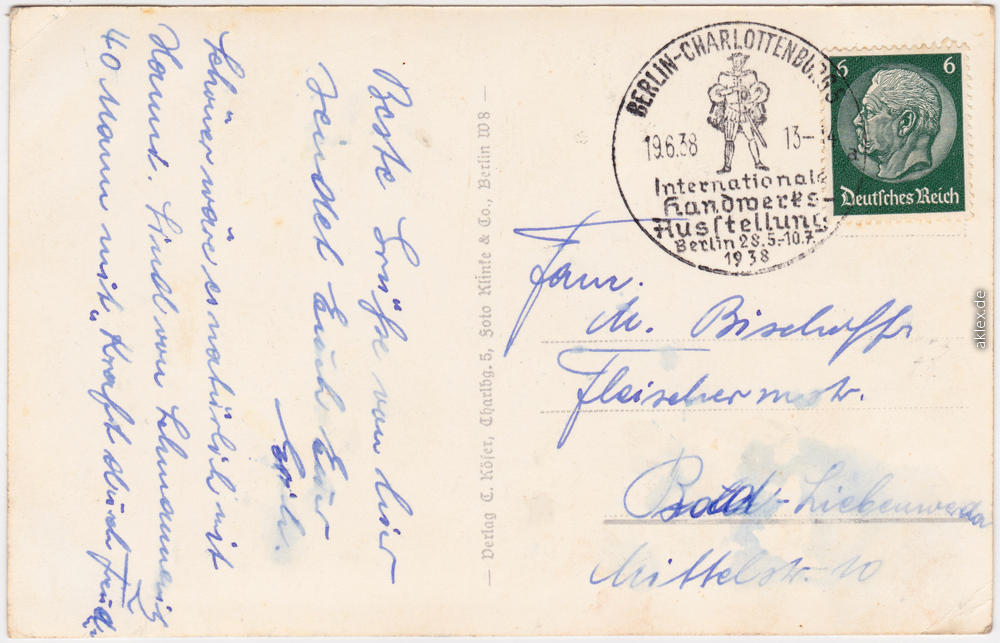 Beste Grüße von hier
sendet Euch Euer
Schöner wäre es natürlich mit
Hanni. Sind von Lehmann mit
40 Mann mit "Kraft durch Freude"
— Verlag C. Köser, Charlbg. 5, Foto Klinke & Co., Berlin W 8 —
BERLIN-CHARLOTTENBURG 5
19.6.38 13–14
Internationale
Handwerks-
Ausstellung
Berlin 28.5.-10.7.
1938
6 6
Deutsches Reich
Fam.
M. Bischoff
Fleischermstr.
Bad-Liebenwerda
Mittelstr. 10
aklex.de